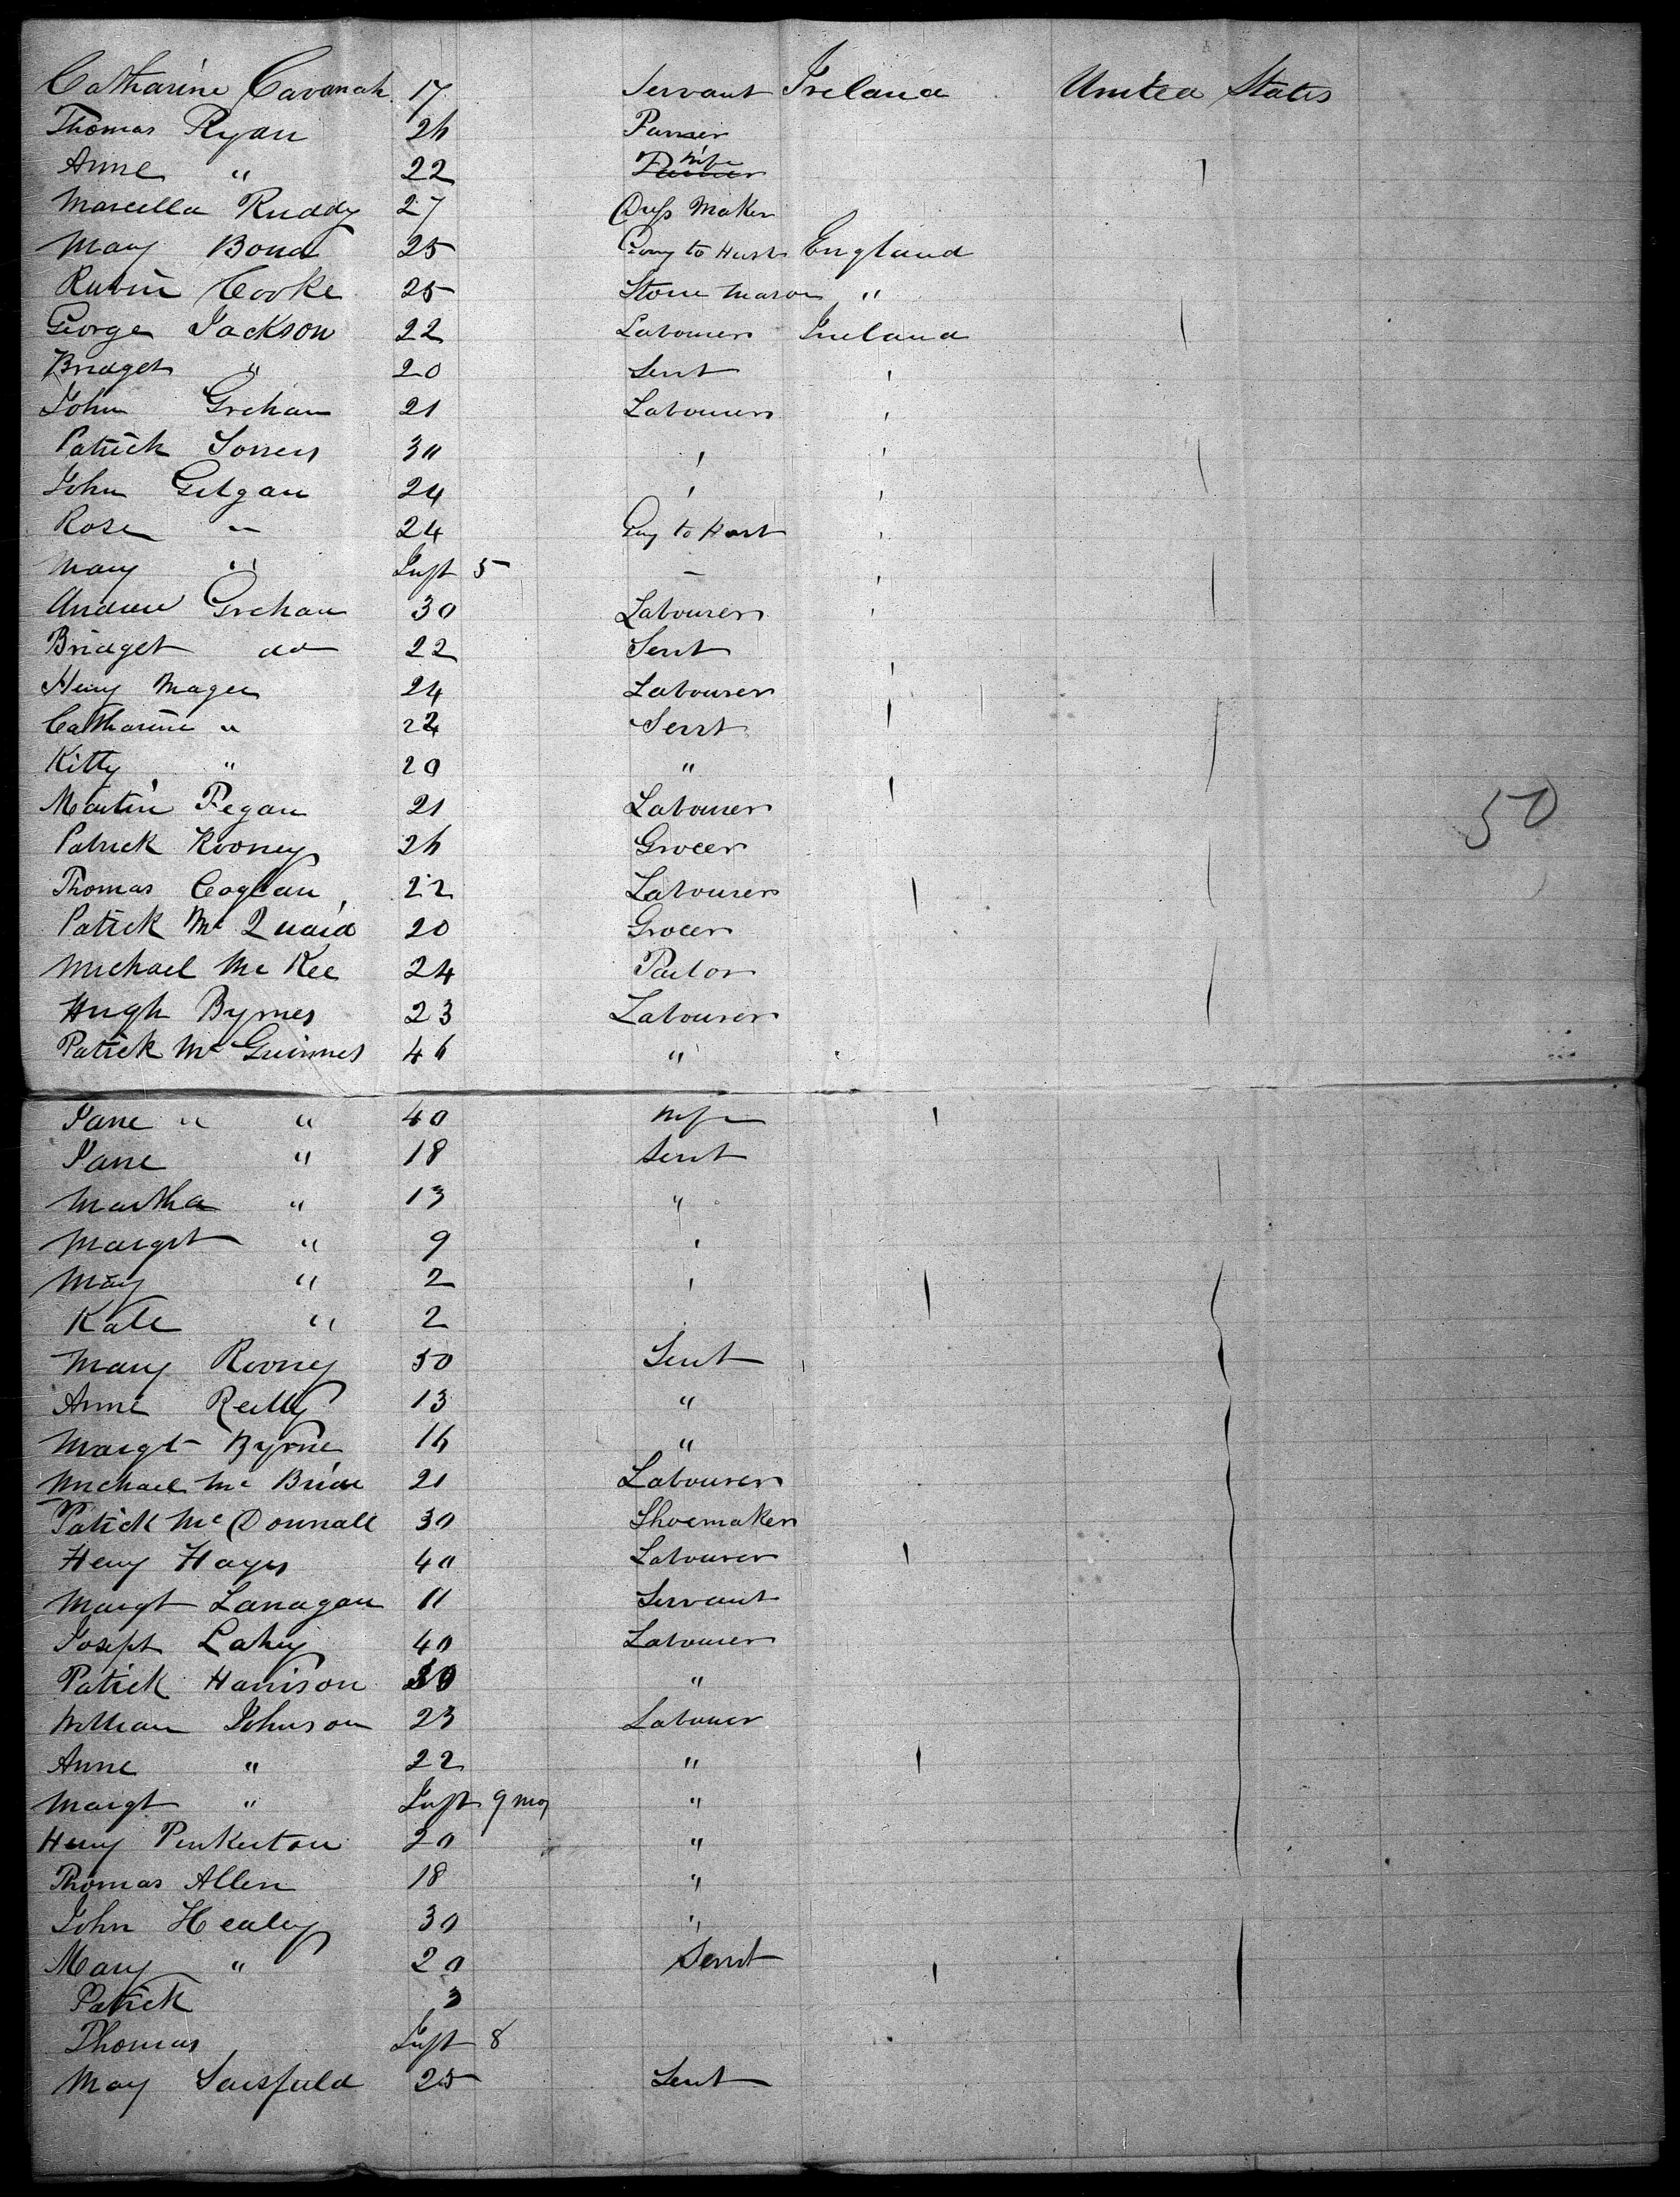 Catharine Cavanah 17 Servant Ireland United States
Thomas Ryan 26 Farmer
Anne " 22 Wife
Marcella Ruddy 27 Dress Maker
Mary Bond 25 Going to Husb England
Cooke 25 Stone Mason "
George Jackson 22 Labourer Ireland
Bridget " 20 Servt
John Grehan 21 Labourer
Patrick 30 "
John Gilgan 24 "
Rose " 24 Gog to Husb
Mary " Inft 5 -
Andrew Grehan 30 Labourer
Bridget do 22 Servt
Henry Magee 24 Labourer
Catharine " 22 Servt
Kitty " 20 "
Martin Fegan 21 Labourer
50
Patrick Rooney 26 Grocer
Thomas Coglan 22 Labourer
Patrick Mc Quaid 20 Grocer
Michael Mc Kee 24 Tailor
Hugh Byrnes 23 Labourer
Patrick Mc Guinnes 46 "
Jane " " 40 Wife
Jane " 18 Servt
Martha " 13 "
Margrt " 9 "
Mary " 2 "
Kate " 2
Mary Rooney 50 Servt
Anne Reilly 13 "
Margt Byrne 16 "
Michael Mc Bride 21 Labourer
Patrick Mc Donnall 30 Shoemaker
Henry Hayes 40 Labourer
Margt Lanagan 11 Servant
Joseph Lahey 40 Labourer
Patrick Harrison 30 "
William Johnson 23 Labouer
Anne " 22 "
Margt " Inft 9 mos "
Henry Pinkerton 20 "
Thomas Allen 18 "
John Healey 30 "
Mary " 20 Servt
Patrick 3
Thomas Inft 8
Mary Sarsfield 25 Servt